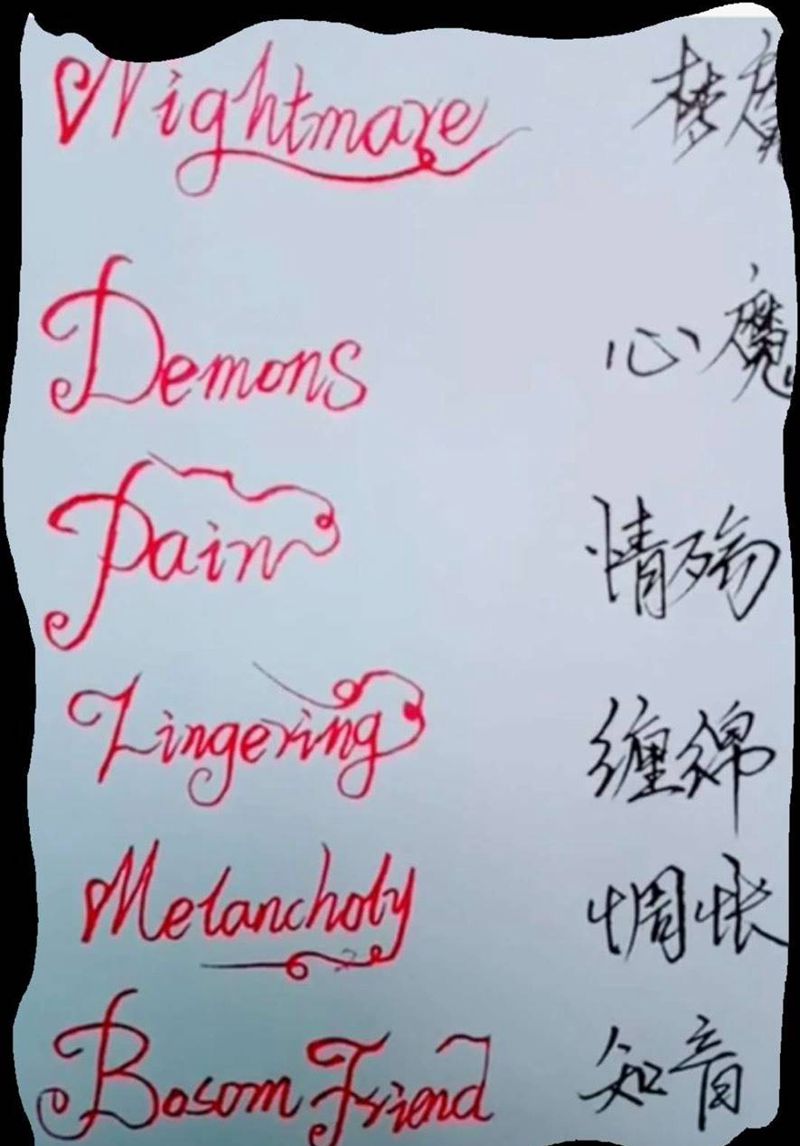 Nightmare 梦魇
Demons 心魔
Pain 情殇
Lingering 缠绵
Melancholy 惆怅
Bosom Friend 知音